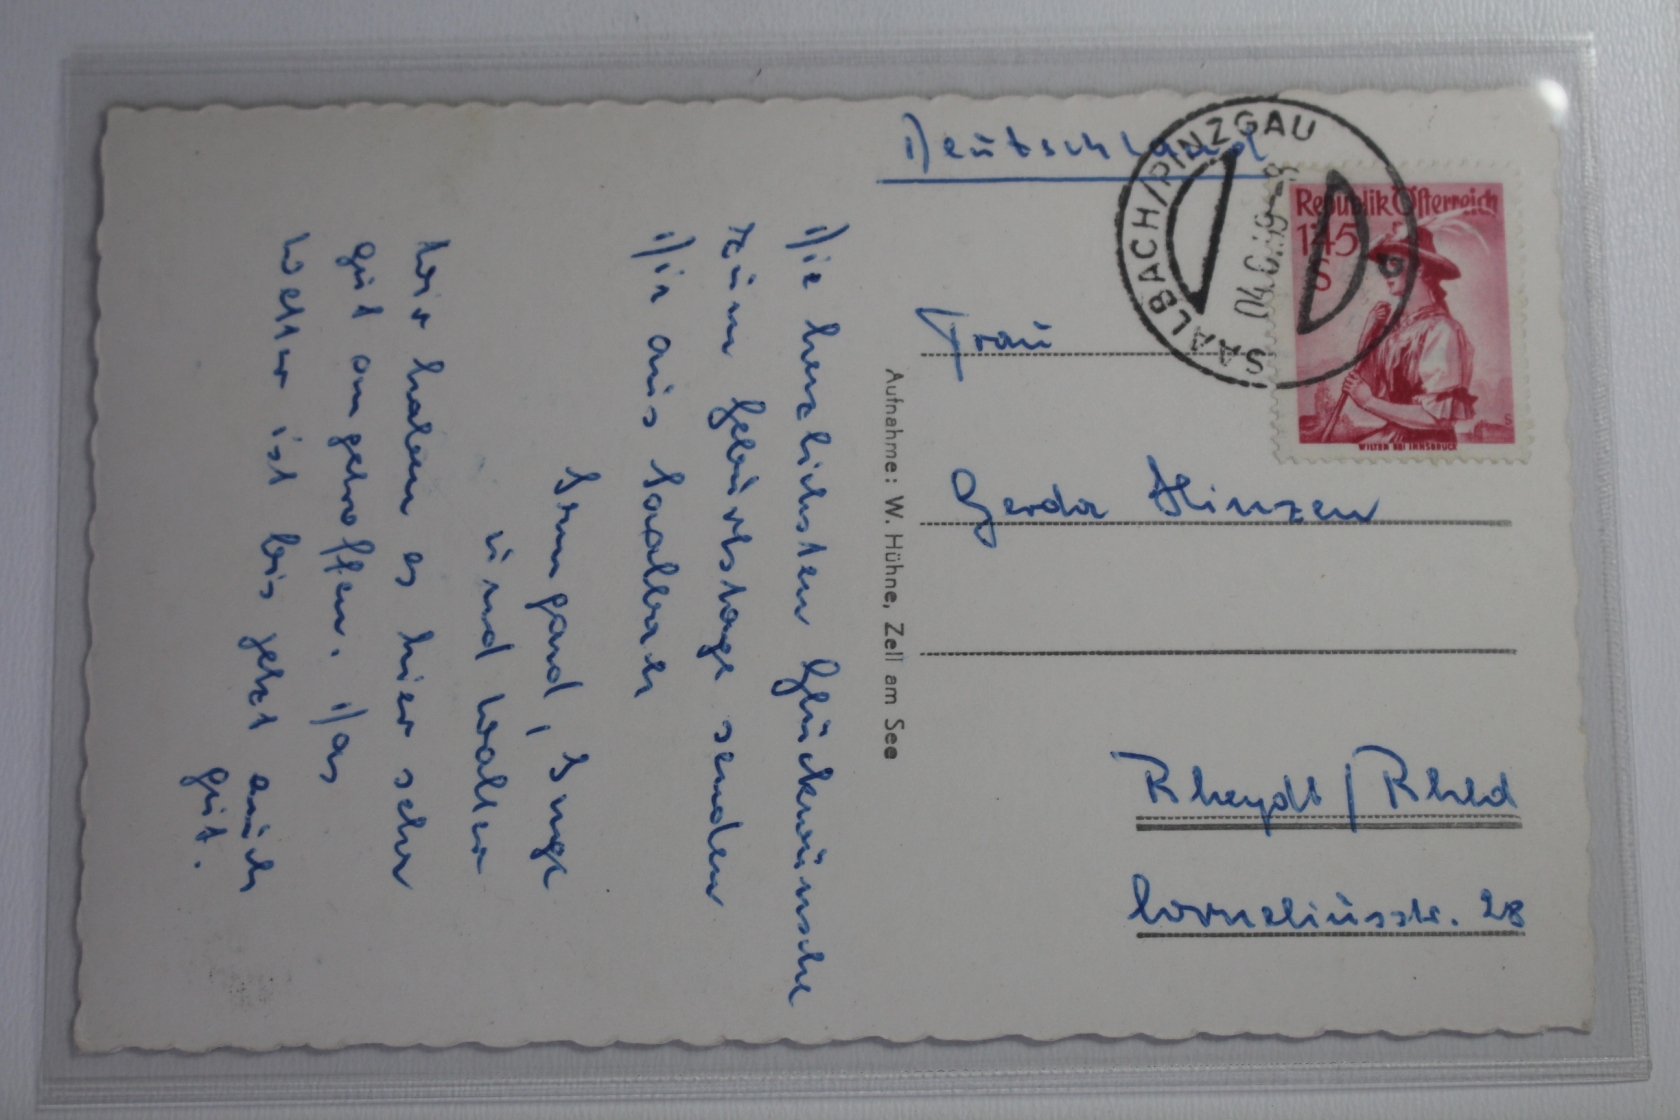 Die herzlichsten Glückwünsche
zum Geburtstage senden
Dir aus Saalbach
Irmgard, Inge
und Walter
Wir haben es hier sehr
gut angetroffen. Das
Wetter ist bis jetzt auch
gut.
Aufnahme: W. Hühne, Zell am See
Deutschland
SAALBACH/PINZGAU
Republik Österreich
1'45
S
WILTEN BEI INNSBRUCK
Frau
Gerda Hinzen
Rheydt / Rhld
Corneliusstr. 28